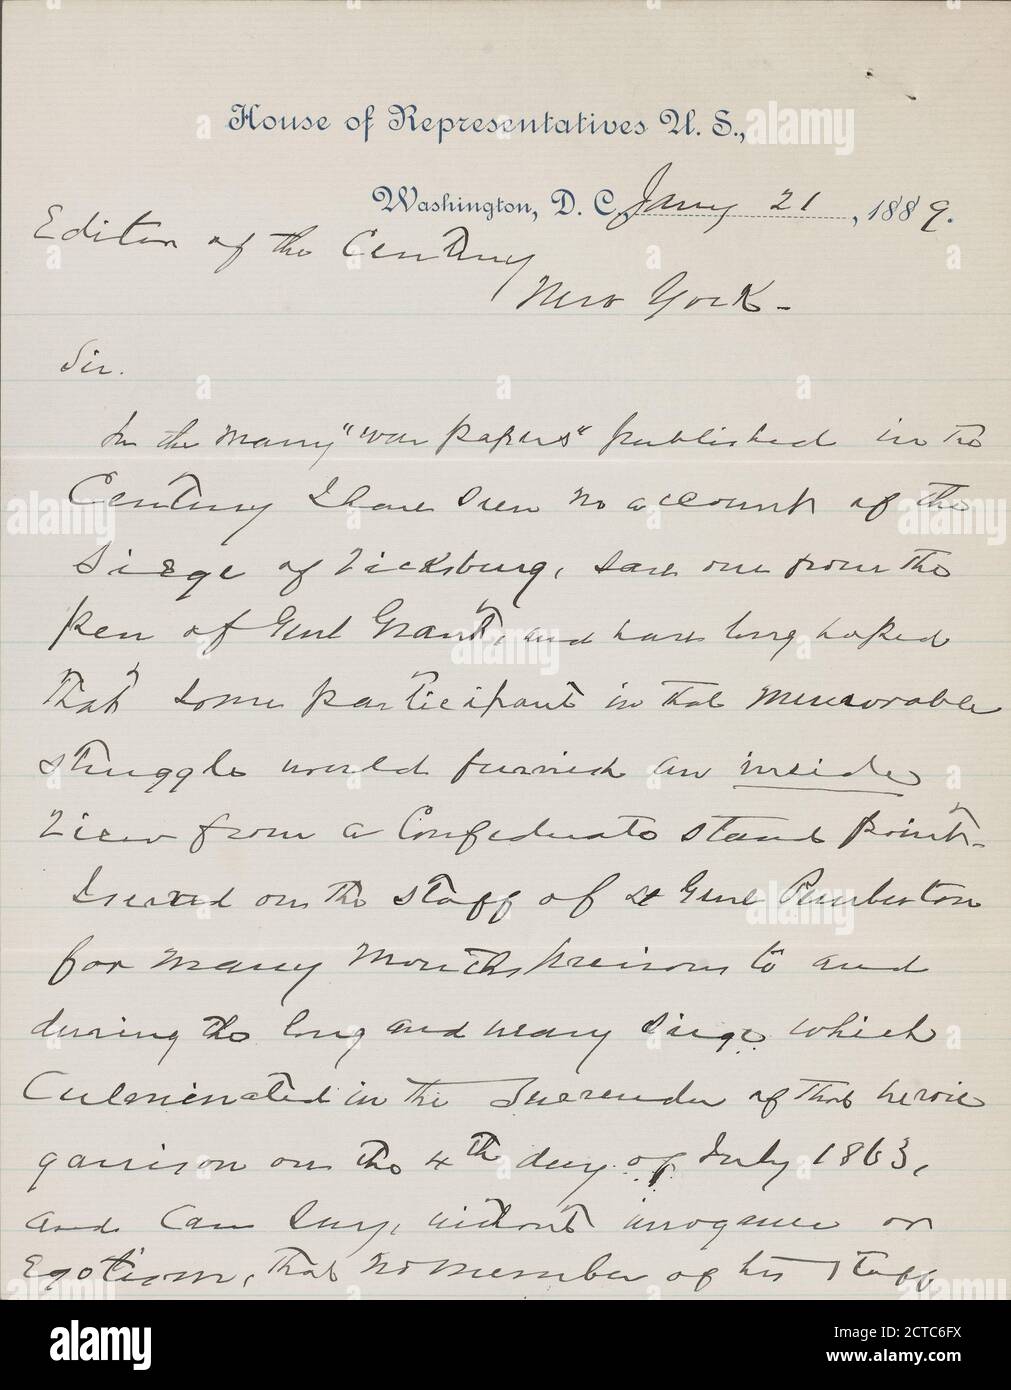 House of Representatives U. S.,
Washington, D. C., Jany 21, 1889.
Editor of the Century
New York -
Sir.
In the many "war papers" published in the
Century I have seen no account of the
Siege of Vicksburg, save one from the
pen of Genl Grant, and have long hoped
that some participant in that memorable
struggle would furnish an inside
view from a Confederate stand point.
I served on the staff of Lt Genl Pemberton
for many months previous to and
during the long and weary siege which
culminated in the surrender of that heroic
garrison on the 4th day of July 1863,
and can say, without arrogance or
egotism, that no member of his staff
alamy
Image ID: 2CTC6FX
www.alamy.com